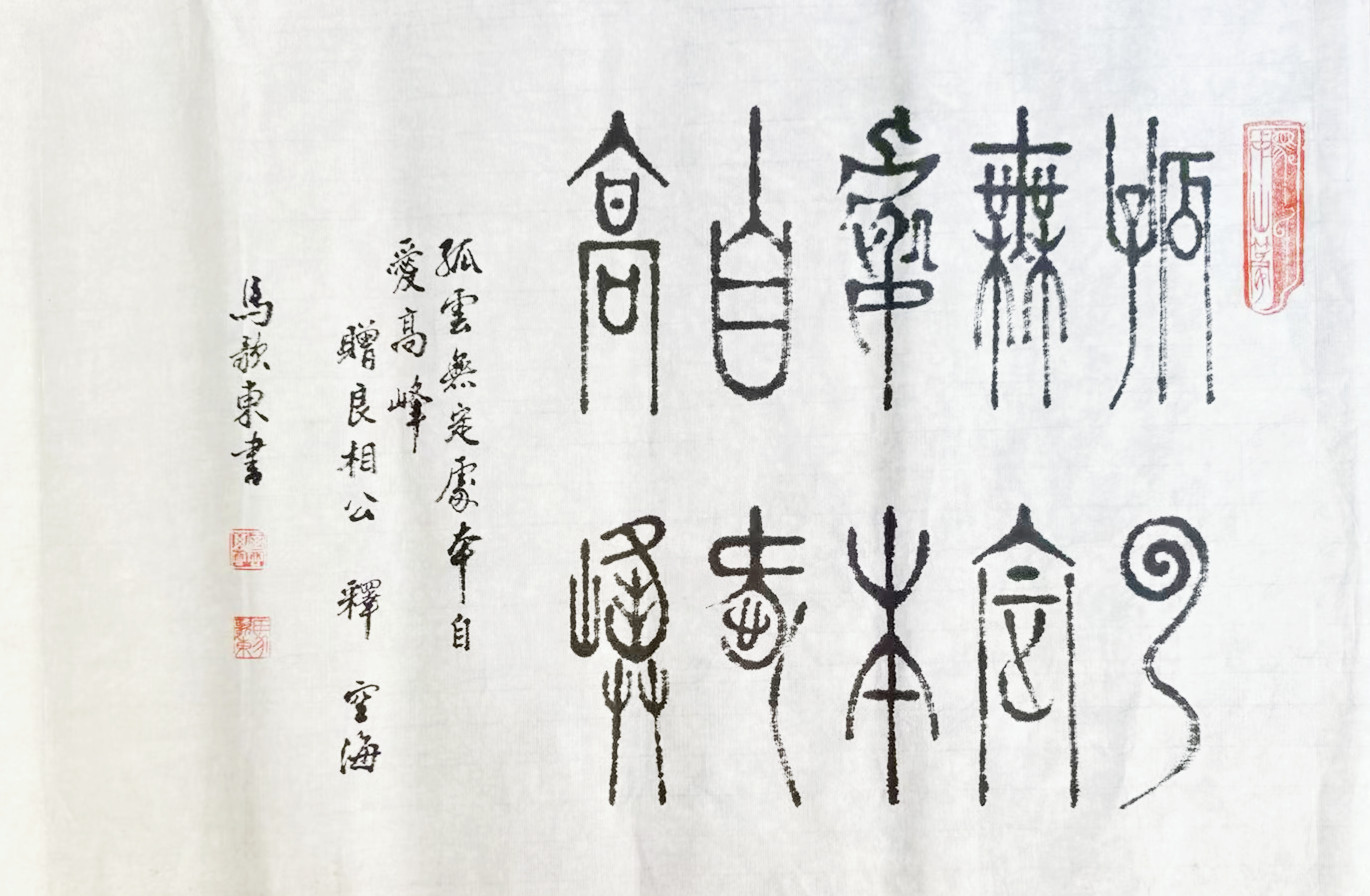 孤雲
無定
處本
自愛
高峰
孤雲無定處本自
愛高峰
贈良相公 釋 空海
馬歌東書